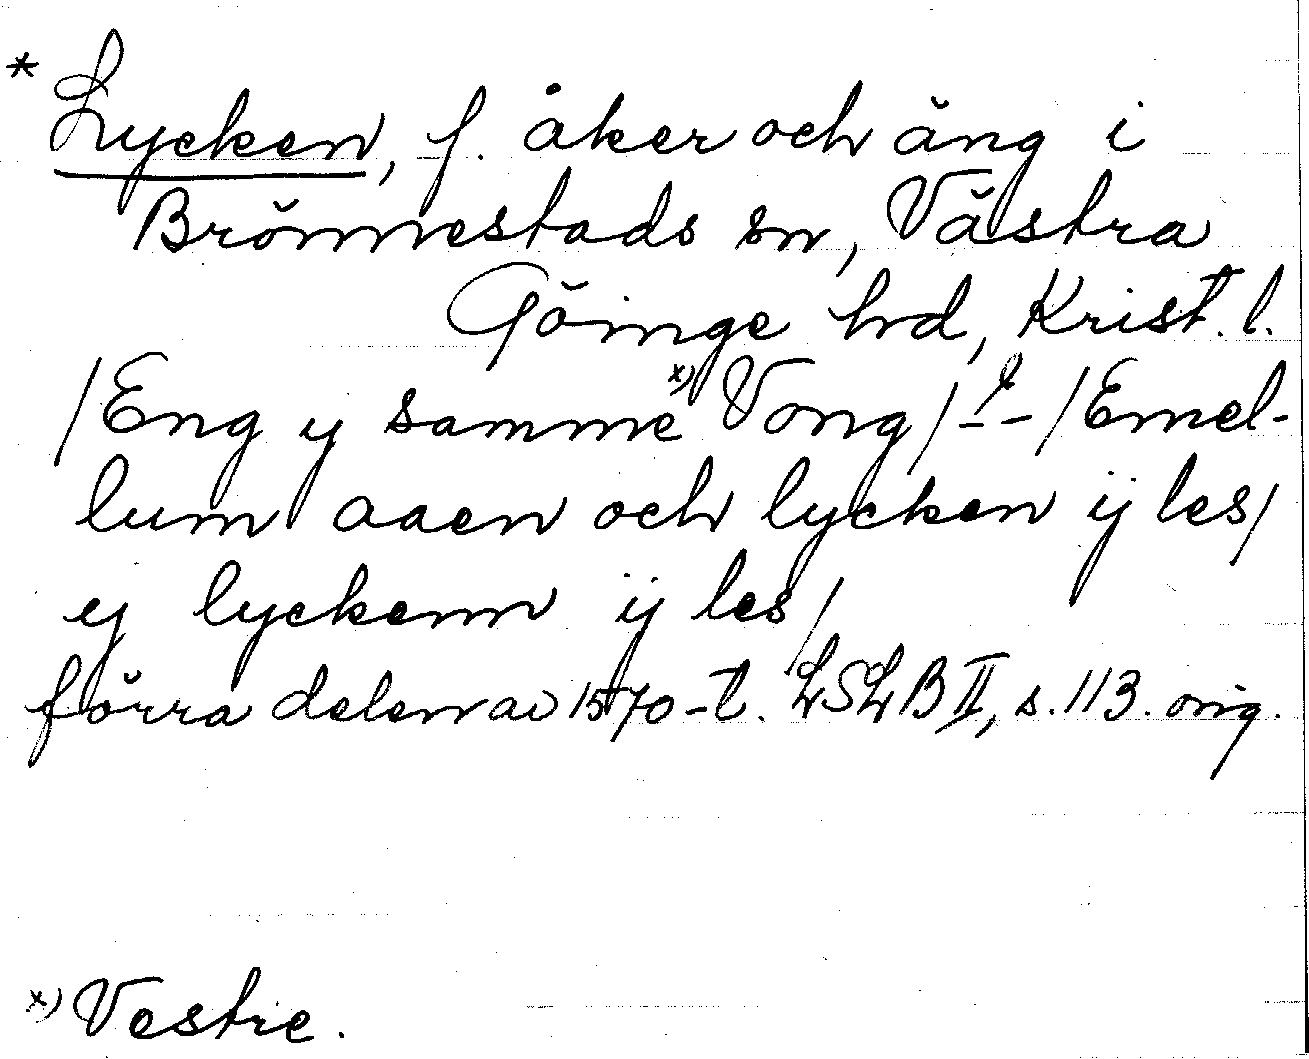 * Lycken, f. åker och äng i
Brönnestads sn, Västra
Göinge hd, Krist. l.
/Eng y samme x) Vong/-"-/Emel-
lum aaen och lycken ij les/
ej lyckenn ij les/
förra delen av 1570-t. LSLB II, s. 113. orig.
x) Vestre.